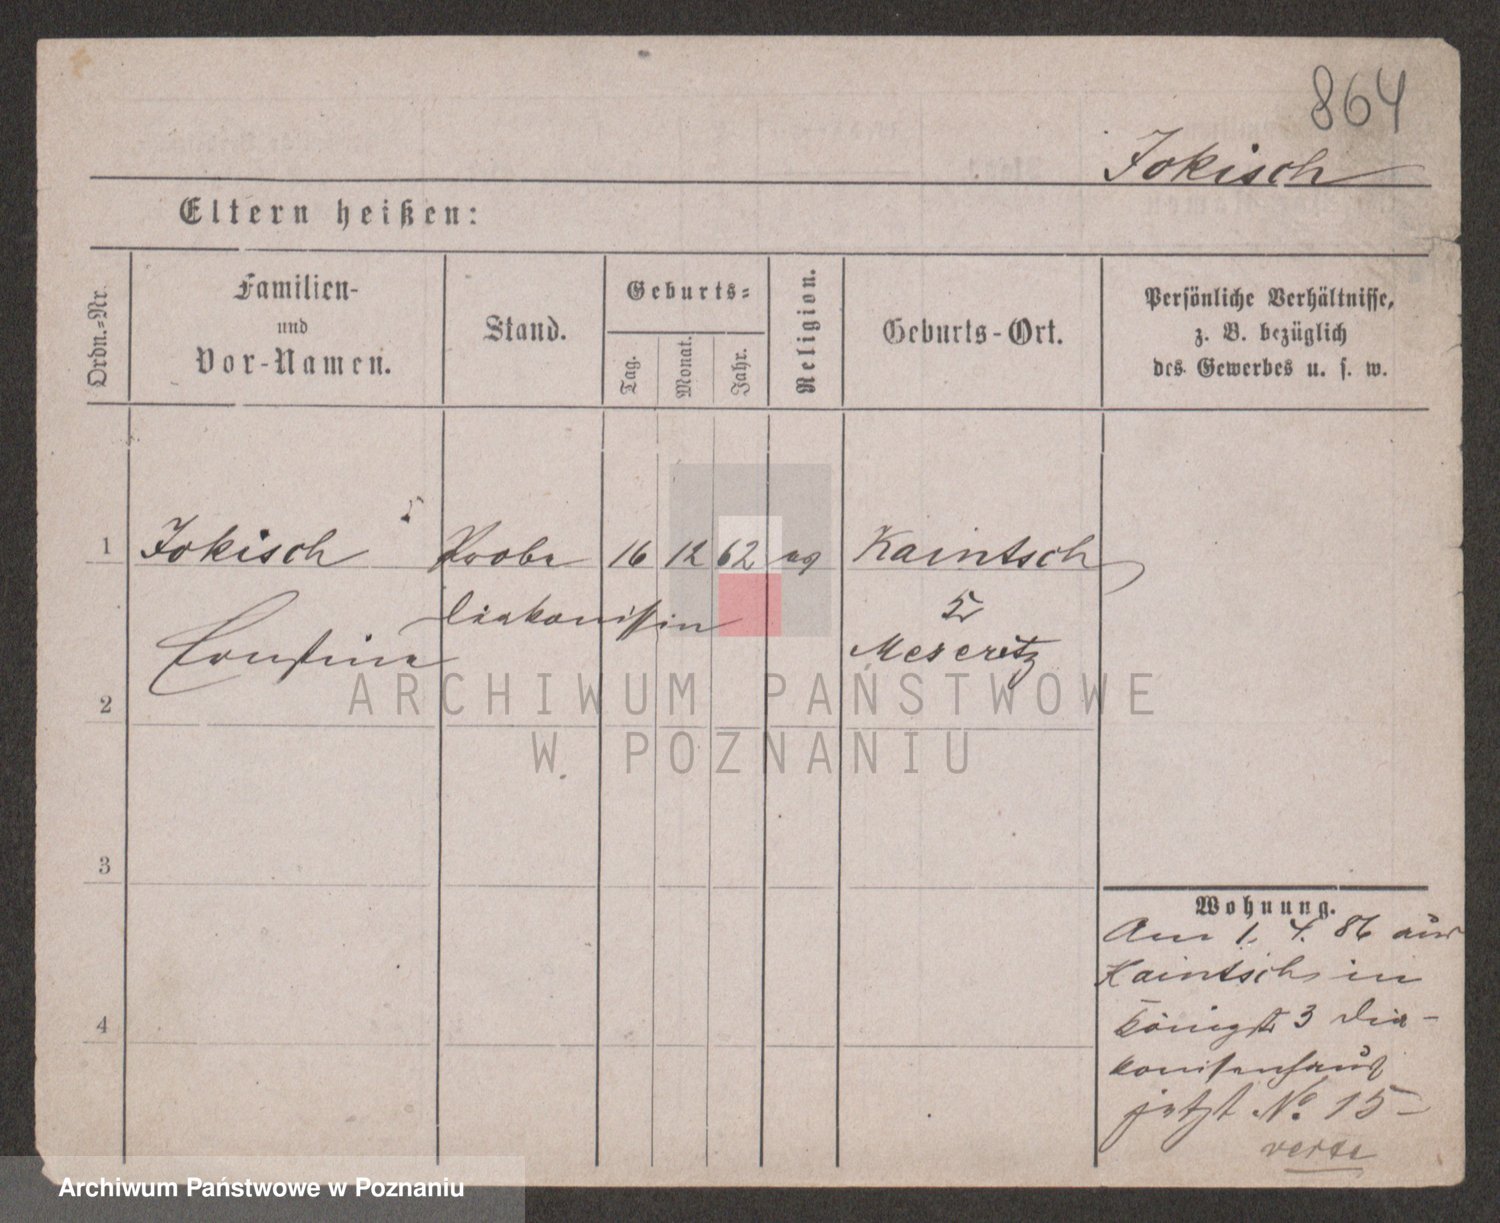 864
Jokisch
Eltern heißen:
Ordn.-Nr.
Familien-
und
Vor-Namen.
Stand.
Geburts-
Tag.
Monat.
Jahr.
Religion.
Geburts-Ort.
Persönliche Verhältnisse,
z. B. bezüglich
des Gewerbes u. s. w.
1 Jokisch Probe 16 12 62 ev Kaintsch
Diakonissin
Meseritz
2
3
4
Wohnung.
Am 1. 4. 86 aus
Kaintsch in
Königstr 3 Dia-
konissenhaus
jetzt No. 15
verte
ARCHIWUM PAŃSTWOWE
W POZNANIU
Archiwum Państwowe w Poznaniu